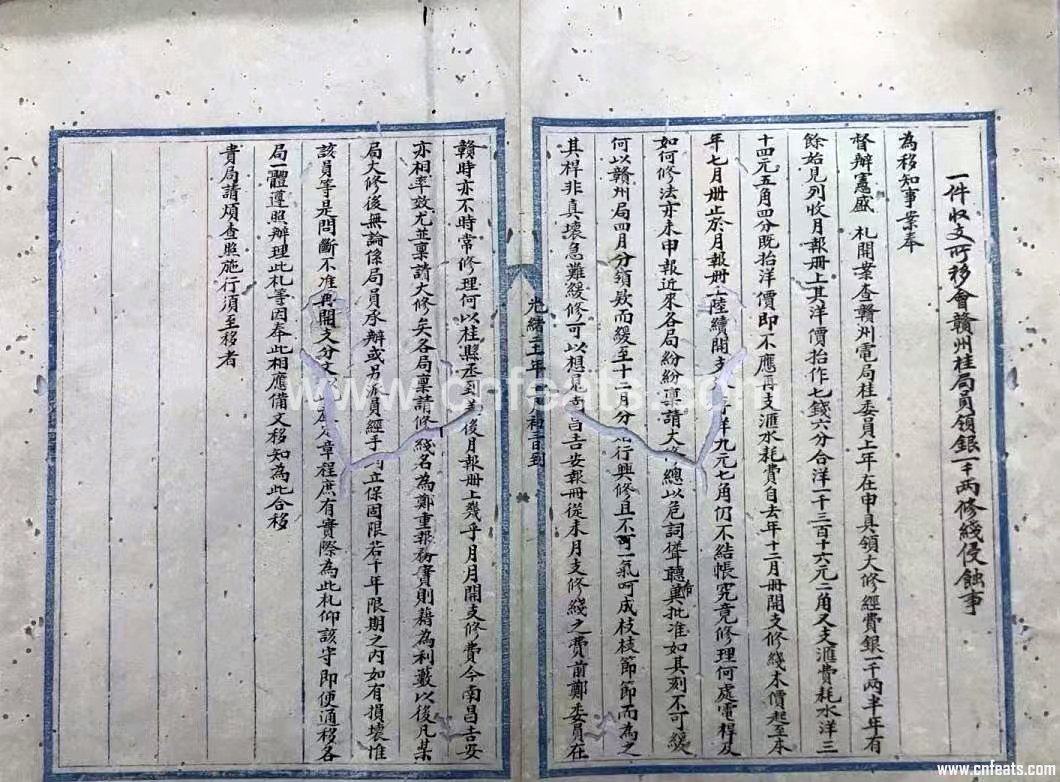 一件收支所移會贛州桂局員領銀一千兩修綫侵蝕事
為移知事案奉
督辦憲盛 札開案查贛州電局桂委員上年在申具領大修經費銀一千兩半年有
餘始見列收月報册上其洋價抬作七錢六分合洋一千三百十六元二角又支滙費耗水洋三
十四元五角四分既抬洋價即不應再支滙水耗費自去年十二月册開支修綫木價起至本
年七月册止於月報册上陸續開支 洋九元七角仍不結帳究竟修理何處電桿及
如何修法亦未申報近來各局紛紛稟請大修總以危詞聳聽兾批准如其刻不可緩
何以贛州局四月分領款而緩至十二月分 行興修且不 一氣呵成枝枝節節而為之
其桿非真壞急難緩修可以想見 昌吉安報冊從未月支修綫之費前鄭委員在
光緒三十一年 月初三日到
贛時亦不時常修理何以桂縣丞到差後月報册上幾乎月月開支修費今南昌吉安
亦相率效尤並稟請大修矣各局稟請修綫名為鄭重報務實則藉為利藪以後凡某
局大修後無論係局員承辦或另派員經手 立保固限若干年限期之內如有損壞惟
該員等是問斷不准再開支分文 章程庶有實際為此札仰該守即便通移各
局一體遵照辦理此札等因奉此相應備文移知為此合移
貴局請煩查照施行須至移者
www.cnfeats.com
www.cnfeats.com